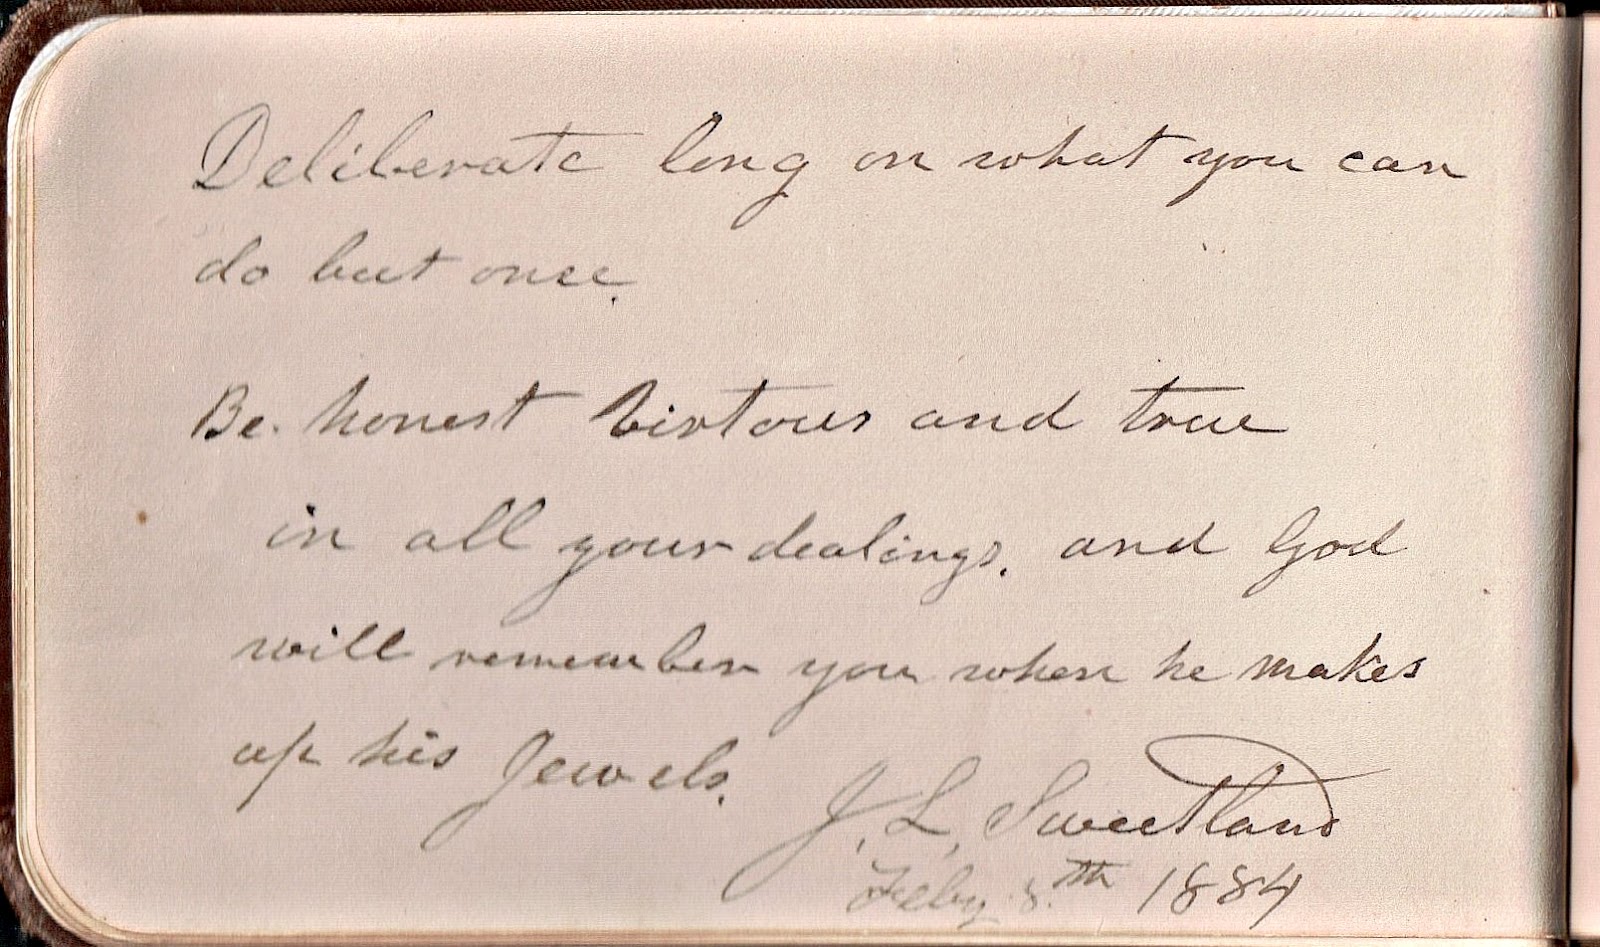 Deliberate long on what you can
do but once.
Be. honest Virtous and true
in all your dealings. and God
will remember you when he makes
up his Jewels.
J. L. Sweetland
Feby 8th 1884